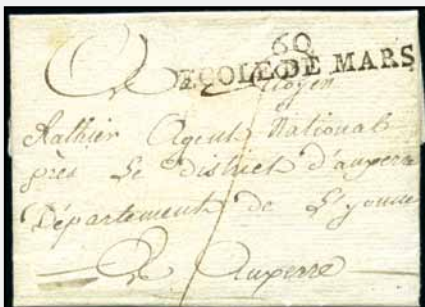 60
ECOLE DE MARS
Au Citoyen
Rathier Agent National
près Le district d'auxerre
Département de L'yonne
A Auxerre